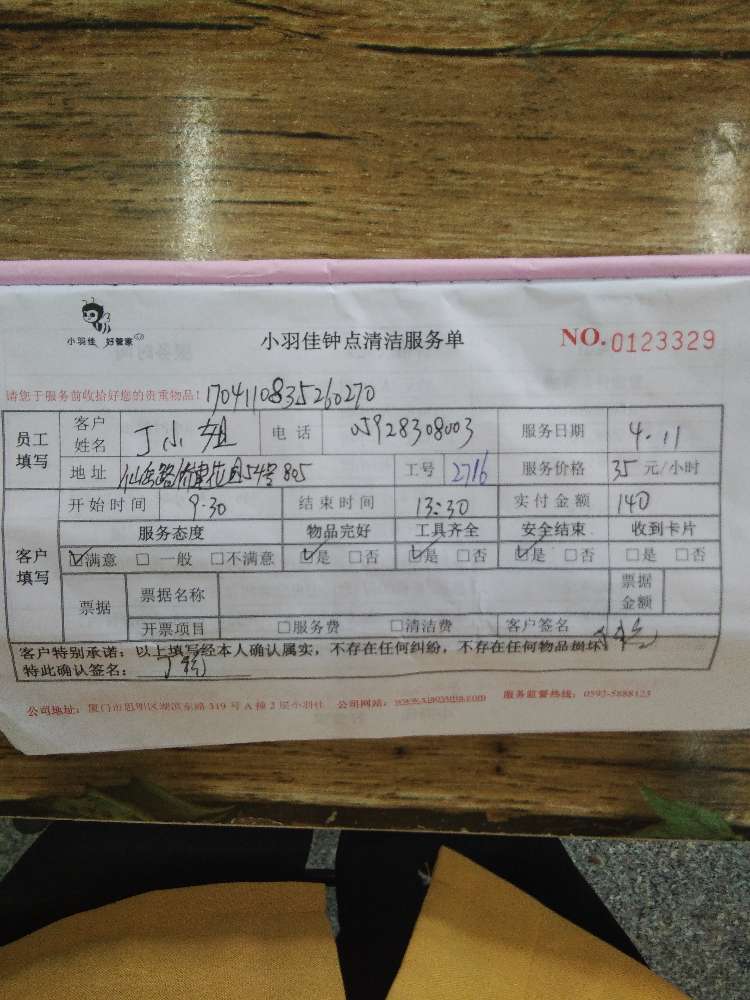 小羽佳 好管家
小羽佳钟点清洁服务单
NO.0123329
请您于服务前收拾好您的贵重物品! 1704110835260270
员工填写 客户姓名 丁小姐 电话 05928308003 服务日期 4.11
地址 仙岳路 花园54号805 工号 2716 服务价格 35 元/小时
客户填写 开始时间 9.30 结束时间 13:30 实付金额 140
服务态度 物品完好 工具齐全 安全结束 收到卡片
☑满意 □ 一般 □不满意 ☑是 □否 ☑是 □否 ☑是 □否 □是 □否
票据 票据名称 票据金额
开票项目 □服务费 □清洁费 客户签名
客户特别承诺:以上填写经本人确认属实,不存在任何纠纷,不存在任何物品损坏
特此确认签名:
公司地址:厦门市思明区湖滨东路 319 号 A 幢 2 层小羽佳 公司网站: 服务监督热线:0592-5888123